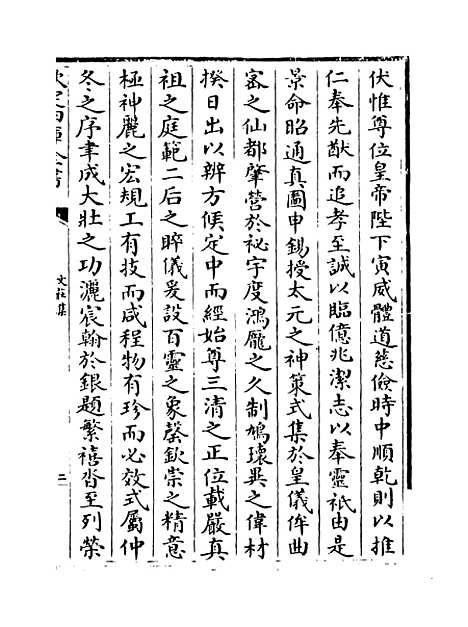 伏惟尊位皇帝陛下寅威體道慈儉時中順乾則以推
仁奉先猷而追孝至誠以臨億兆潔志以奉靈祇由是
景命昭通真圖申錫授太元之神策式集於皇儀侔曲
密之仙都肇營於祕宇度鴻龎之久制鳩瓌異之偉材
揆日出以辨方候定中而經始尊三清之正位載嚴真
祖之庭範二后之睟儀爰設百靈之象罄欽崇之精意
極神麗之宏規工有技而咸程物有珍而必效式屬仲
冬之序聿成大壯之功灑宸翰於銀題繁禧沓至列榮
欽定四庫全書
文莊集